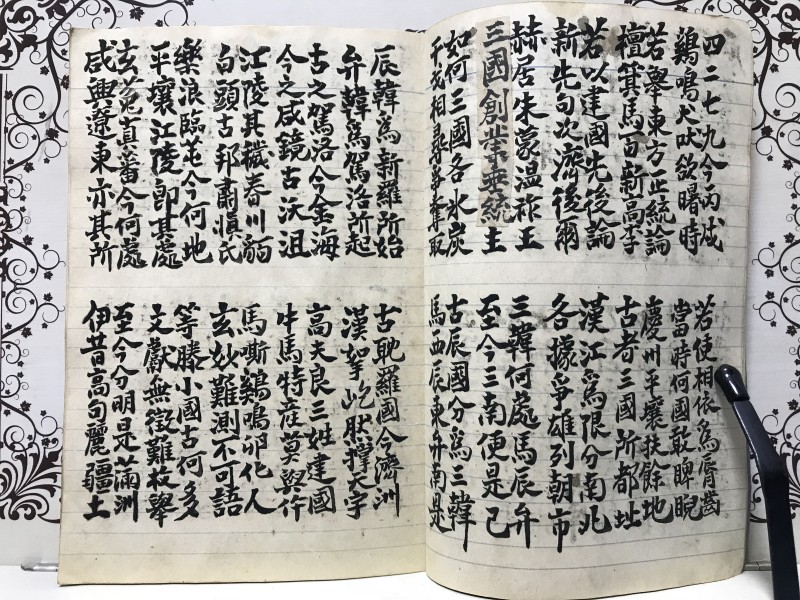 四二七九今丙戌
鷄鳴犬吠欲曙時
若擧東方正統論
檀箕馬百新高李
若以建國先後論
新先句次濟後爾
赫居朱蒙溫祚王
三國創業垂統主
如何三國各氷炭
干戈相尋爭奪取
若使相依爲脣齒
當時何國敢睥睨
慶州平壤扶餘地
古者三國所都址
漢江爲限分南北
各據爭雄列朝市
三韓何處馬辰弁
至今三南便是已
古辰國分爲三韓
馬西辰東弁南是
辰韓爲新羅所始
弁韓爲駕洛所起
古之駕洛今金海
今之咸鏡古沃沮
江陵其穢春川貊
白頭古邦肅愼氏
樂浪臨芚今何地
平壤江陵卽其處
玄菟眞番今何處
咸興遼東亦其所
古耽羅國今濟洲
漢拏屹然撑天宇
高夫良三姓建國
牛馬特産莫與仵
馬嘶鷄鳴卵化人
玄妙難測不可語
等勝小國古何多
文獻無徵難枚擧
至今分明是滿洲
伊昔高句麗疆土